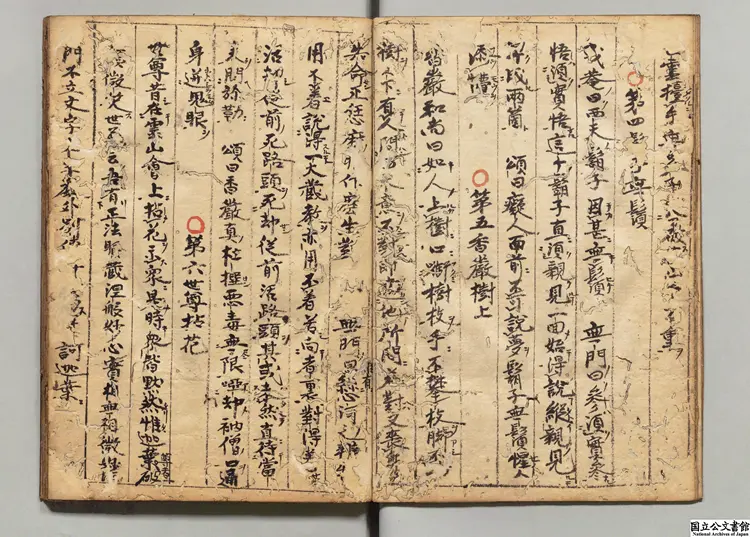 手無
第四則 無鬚
或菴曰西天鬍子因甚無鬚 無門曰参須實参
悟須實悟這个鬍子直須親見一回始得說縱親見
早成兩箇 頌曰癡人面前不可說夢鬍子無鬚惺
添懵
第五香嚴樹上
香嚴和尚曰如人上樹口啣樹枝手不攀枝脚不
樹下有人問 來意不對即違他所問若對又喪身
失命正恁麽時作麽生對 無門曰 懸河之
用不着說得一大藏教亦用不着若向者裏對得
活却從前死路頭死却從前活路頭其或未然直待當
来問弥勒 頌曰香嚴真杜撰悪毒無限唖却衲僧口通
身迸鬼眼
第六世尊拈花
世尊昔在霊山會上拈花示衆是時衆皆黙然惟迦葉尊者破
微笑世尊云吾有正法眼藏涅槃妙心實相無相微妙
門不立文字 教外別傳 訶迦葉
国立公文書館
National Archives of Japan